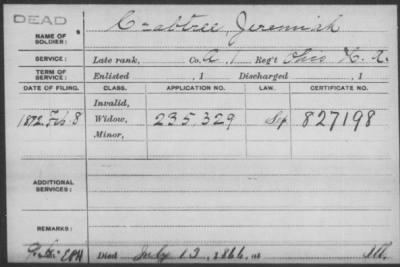 DEAD
NAME OF SOLDIER: Crabtree Jeremiah
SERVICE: Late rank, Co. A, 1 Reg't Ohio H. A.
TERM OF SERVICE: Enlisted , 1 Discharged , 1
DATE OF FILING. CLASS. APPLICATION NO. LAW. CERTIFICATE NO.
Invalid,
1872 Feb 8 Widow, 235,329 827198
Minor,
ADDITIONAL SERVICES:
REMARKS:
Died July 13, 1866, at